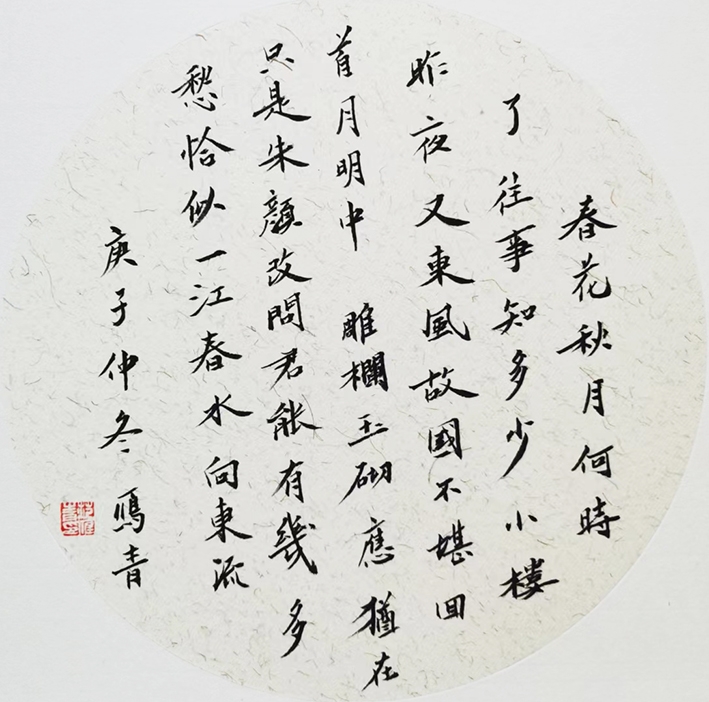 春花秋月何時
了往事知多少小樓
昨夜又東風故國不堪回
首月明中雕欄玉砌應猶在
只是朱顏改問君能有幾多
愁恰似一江春水向東流
庚子仲冬鳴青